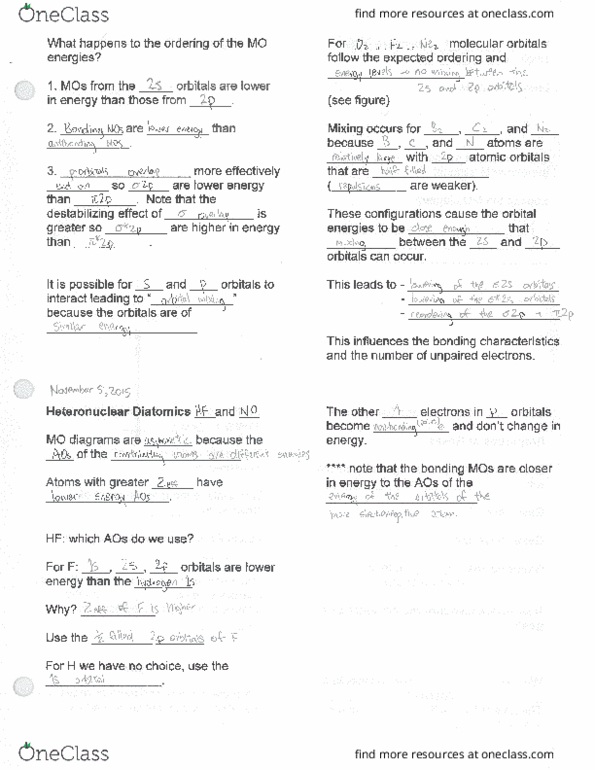 OneClass
find more resources at oneclass.com
What happens to the ordering of the MO
energies?
1. MOs from the 2s orbitals are lower
in energy than those from 2p.
2. Bonding MOs are lower energy than
antibonding MOs.
3. p orbitals overlap more effectively
end on so σ2p are lower energy
than π2p. Note that the
destabilizing effect of σ overlap is
greater so σ*2p are higher in energy
than π*2p.
It is possible for s and p orbitals to
interact leading to "orbital mixing"
because the orbitals are of
similar energy
November 5, 2015
Heteronuclear Diatomics HF and NO
MO diagrams are asymmetric because the
AOs of the contributing atoms are different energies
Atoms with greater Zeff have
lower energy AOs.
HF: which AOs do we use?
For F: 1s, 2s, 2p orbitals are lower
energy than the hydrogen 1s
Why? Zeff of F is higher
Use the ½ filled 2p orbitals of F
For H we have no choice, use the
1s orbital.
For O2, F2, Ne2 molecular orbitals
follow the expected ordering and
energy levels - no mixing between the
2s and 2p orbitals
(see figure)
Mixing occurs for B2, C2, and N2
because B, C, and N atoms are
relatively large with 2p atomic orbitals
that are half filled
(repulsions are weaker).
These configurations cause the orbital
energies to be close enough that
mixing between the 2s and 2p
orbitals can occur.
This leads to - lowering of the σ2s orbitals
- lowering of the σ*2s orbitals
- reordering of the σ2p + π2p
This influences the bonding characteristics
and the number of unpaired electrons.
The other 4 electrons in p orbitals
become nonbonding and don't change in
energy.
**** note that the bonding MOs are closer
in energy to the AOs of the
energy of the orbitals of the
more electronegative atom.
OneClass
find more resources at oneclass.com